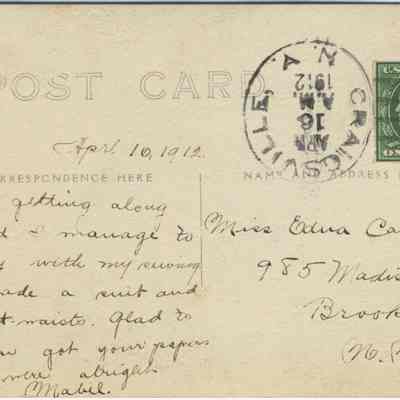 POST CARD
CRAIGSVILLE, N.Y.
APR
16
A.M.
1912
U.S.
April 10, 1912.
CORRESPONDENCE HERE
NAME AND ADDRESS
getting along
I manage to
with my sewing
made a suit and
waists. Glad to
got your papers
were alright
Mabel.
Miss Edna Ca
985 Madis
Brook
N.